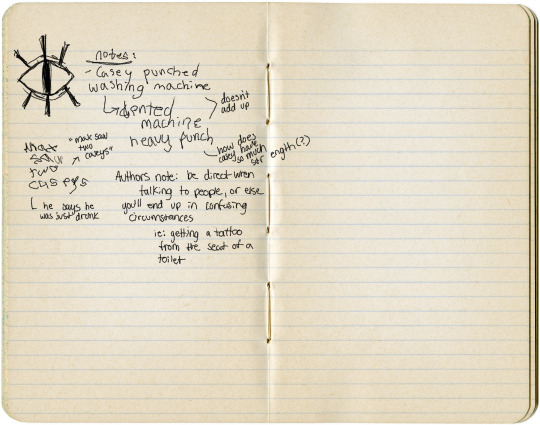 notes:
- Casey punched
washing machine
↳ dented
machine
doesn't
add up
heavy punch
how does
casey have
so much
str ength(?)
Max
saw
two
caseys
"max saw
two
caseys"
he says he
was just drunk
Authors note: be direct when
talking to people, or else
you'll end up in confusing
circumstances
ie: getting a tattoo
from the seat of a
toilet